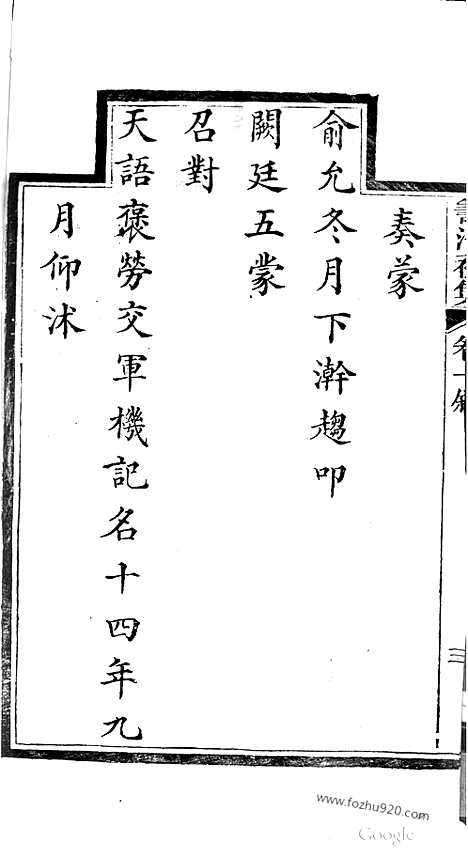 奏蒙
俞允冬月下澣趨叩
闕廷五蒙
召對
天語褒勞交軍機記名十四年九
月仰沐
卷十
三
www.fozhu920.com
Google